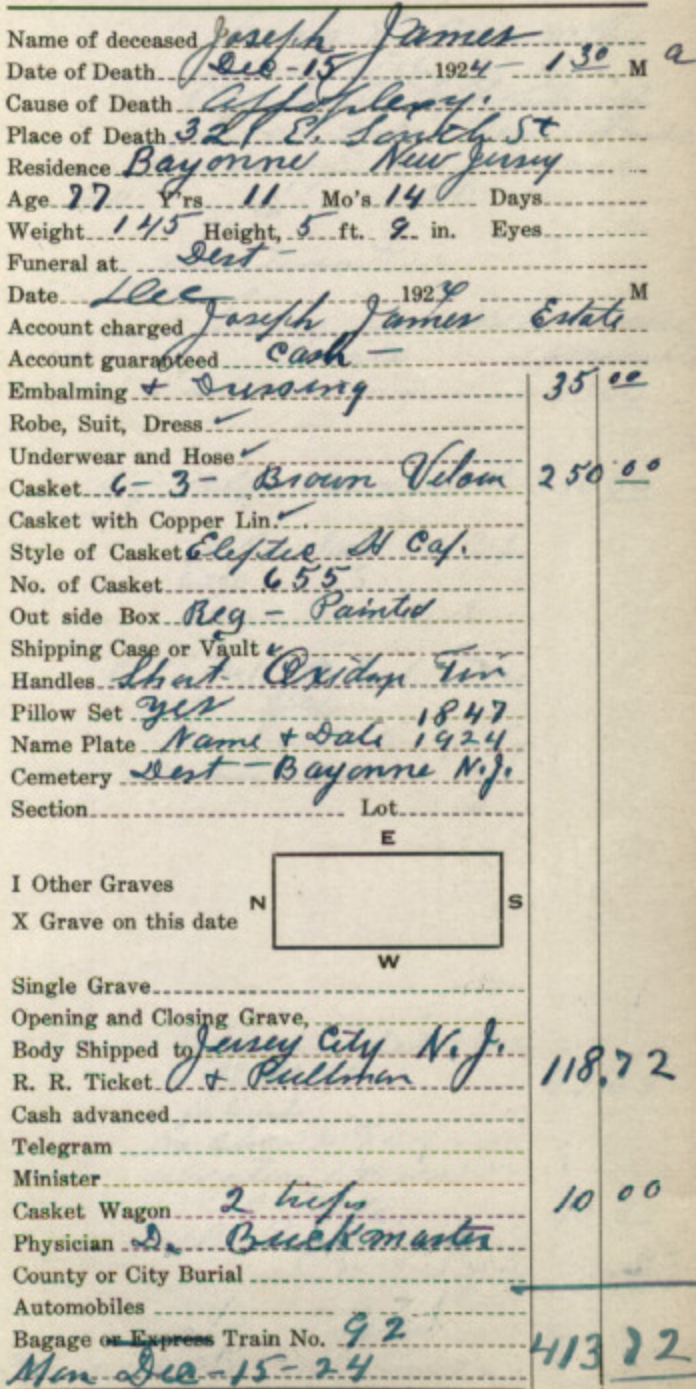 Name of deceased Joseph James
Date of Death Dec - 15 1924 - 1 30 M a
Cause of Death Appoplexy.
Place of Death 321 E. South St
Residence Bayonne New Jersey
Age 77 Y'rs 11 Mo's 14 Days
Weight 145 Height, 5 ft. 9 in. Eyes
Funeral at Dest -
Date Dec 1924 M
Account charged Joseph James Estate
Account guaranteed Cash -
Embalming + Dressing 35 00
Robe, Suit, Dress ✓
Underwear and Hose ✓
Casket 6-3- Brown Velour 250 00
Casket with Copper Lin. ✓
Style of Casket Eleptic H Cap.
No. of Casket 655
Out side Box Reg - Painted
Shipping Case or Vault ✓
Handles Short Fin
Pillow Set yes 1847
Name Plate Name + Date 1924
Cemetery Dest - Bayonne N.J.
Section Lot
E
I Other Graves
N S
X Grave on this date
W
Single Grave
Opening and Closing Grave,
Body Shipped to Jersey City N.J.
R. R. Ticket + Pullman 118.72
Cash advanced
Telegram
Minister
Casket Wagon 2 trips 10 00
Physician D. Buckmaster
County or City Burial
Automobiles
Bagage or Express Train No. 92 413 72
Mon Dec - 15 - 24